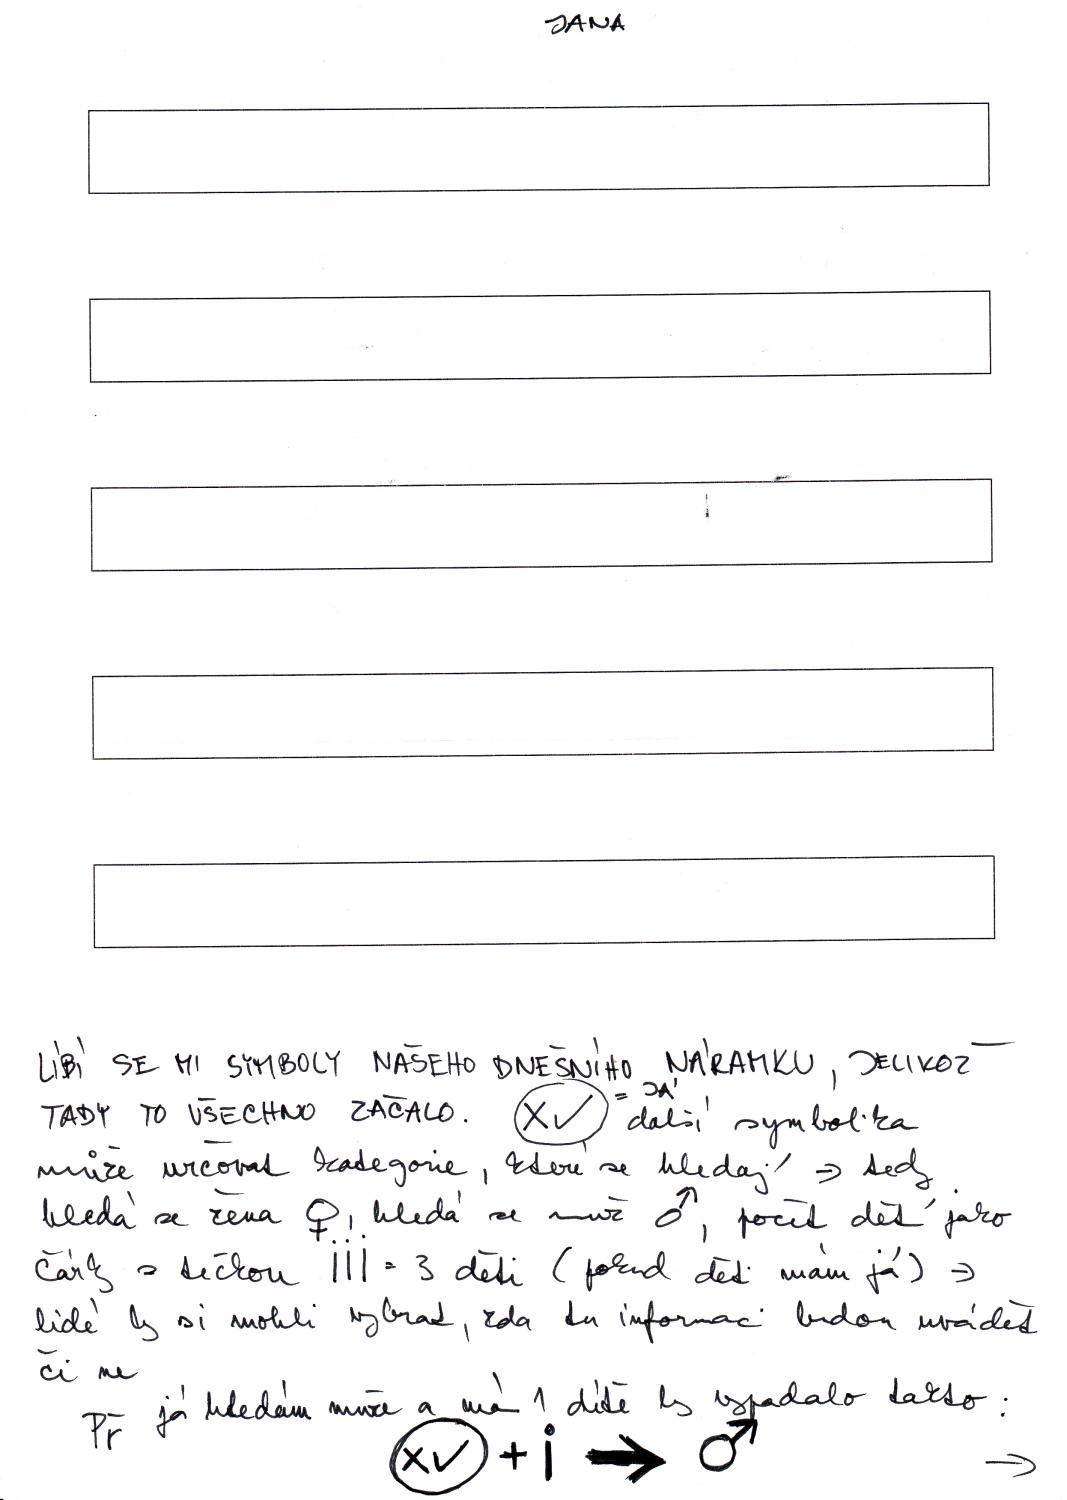 JANA
LÍBÍ SE MI SYMBOLY NAŠEHO DNEŠNÍHO NÁRAMKU, JELIKOŽ
TADY TO VŠECHNO ZAČALO. XV = JÁ další symbolika
může určovat kategorie, které se hledají => tedy
hledá se žena ♀, hledá se muž ♂, počet dětí jako
čárky s tečkou iii = 3 děti (pokud děti mám já) =>
lidé by si mohli vybrat, zda tu informaci budou uvádět
či ne
Př já hledám muže a má 1 dítě by vypadalo takto:
x✓ + i → ♂ →